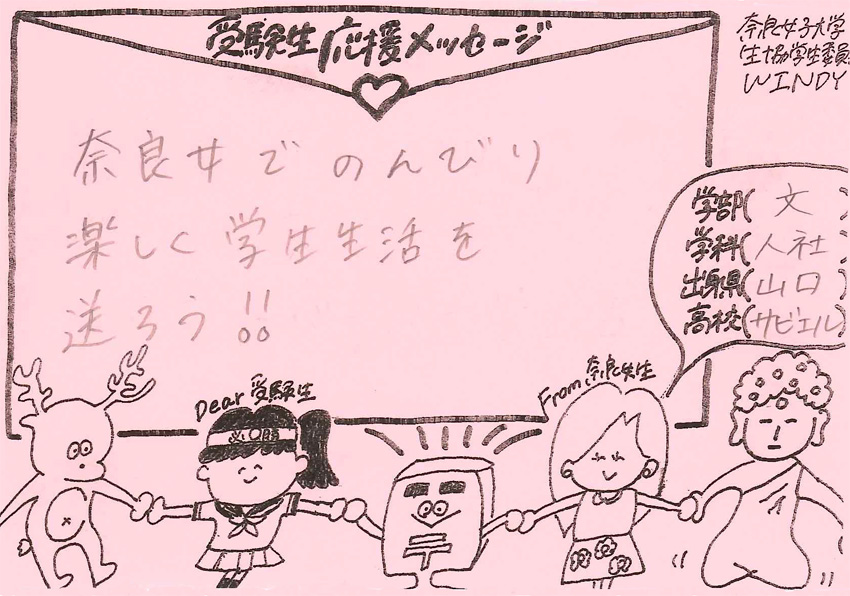 受験生応援メッセージ
奈良女子大学
生協学生委員
WINDY
奈良女でのんびり
楽しく学生生活を
送ろう!!
学部(文)
学科(人社)
出身県(山口)
高校(サビエル)
Dear 受験生
From 奈良女生
必○勝
〒